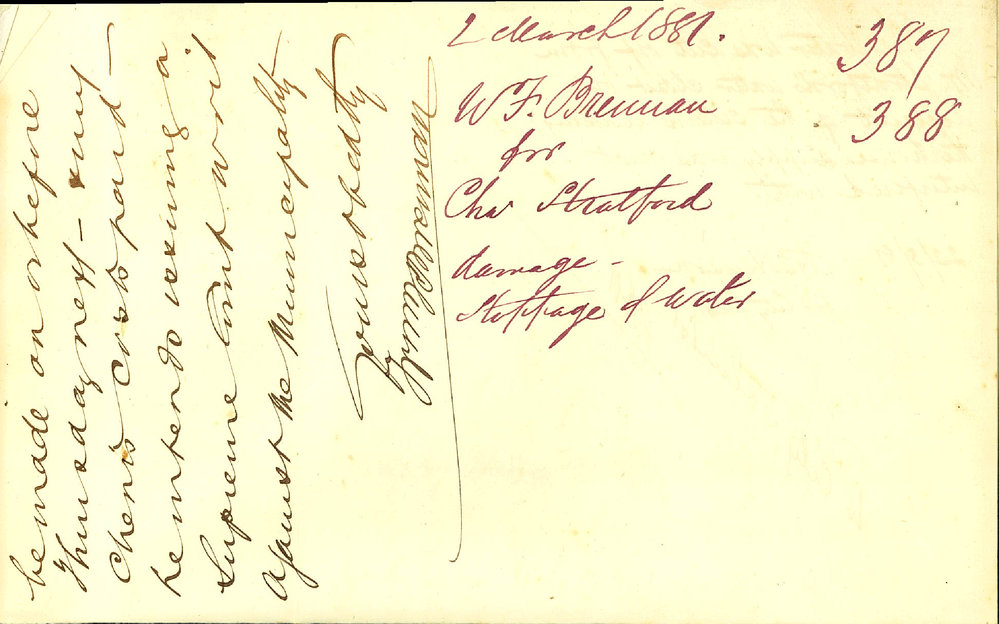 be made on or before
Thursday next – and my
Cheno Costs paid –
he intends issuing a
Supreme Court writ
against the Municipality
Yours obedtly
Wm F Brennan
2 March 1881.
387
W F. Brennan
388
for
Chas Stratford
damage –
Stoppage of water